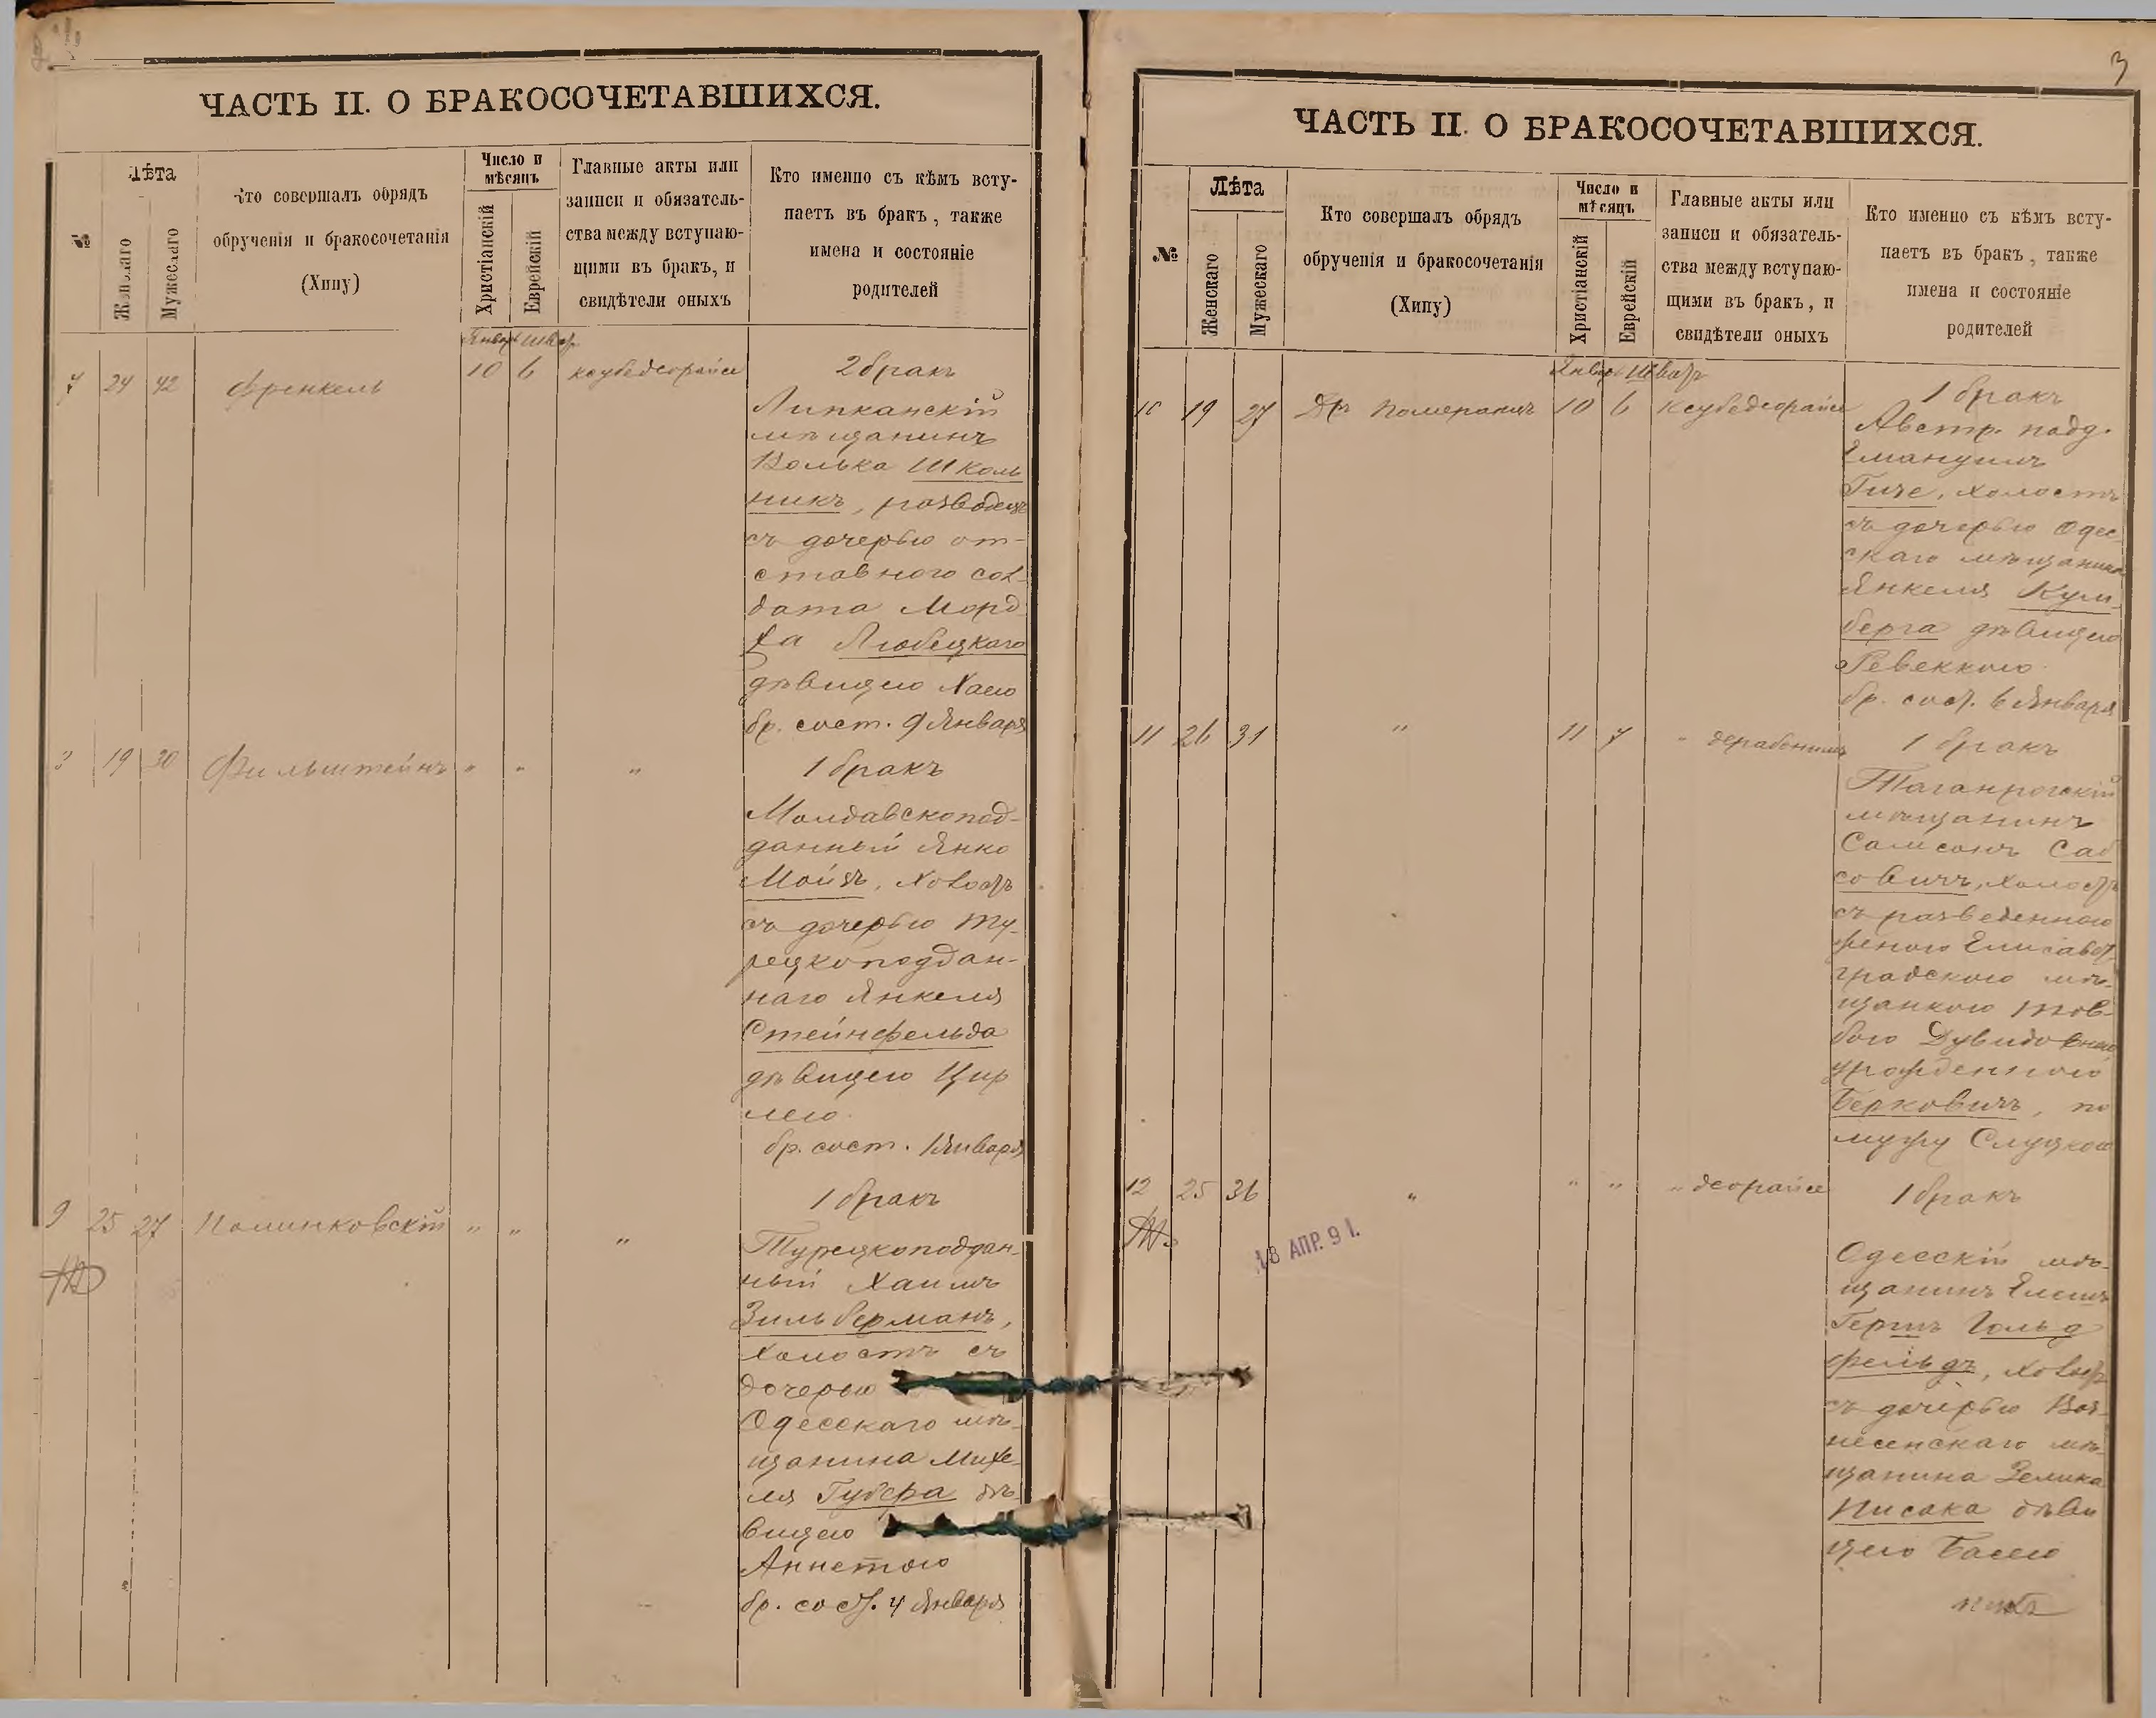 ЧАСТЬ II. О БРАКОСОЧЕТАВШИХСЯ.
№
Лѣта
Женскаго
Мужескаго
Кто совершалъ обрядъ
обрученія и бракосочетанія
(Хипу)
Число и
мѣсяцъ
Христіанскій
Еврейскій
Главные акты или
записи и обязатель-
ства между вступаю-
щими въ бракъ, и
свидѣтели оныхъ
Кто именно съ кѣмъ всту-
паетъ въ бракъ, также
имена и состояніе
родителей
Январ Шват
7 24 42 Френкель 10 6 ксубедеорайсе
2 бракъ
Липканскій
мѣщанинъ
Волька Школь
никъ, разведен
съ дочерью от-
ставного сол-
дата Морд
ка Любецкаго
дѣвицею Хаею
бр. сост. 9 Января
19 30 Фильштейнъ " " "
1 бракъ
Молдавскопод-
данный Янко
Мойзъ, холостъ
съ дочерью ту-
рецкоподдан-
наго Янкеля
Стейнфельда
дѣвицею Цир
лею
бр. сост. 1 Января
9 25 27 Полинковскій " " "
1 бракъ
Турецкоподдан-
ный Хаимъ
Зильберманъ,
холостъ съ
дочерью
Одесскаго мѣ-
щанина Михе-
ля Губера дѣ-
вицею
Аннетою
бр. сост. 4 Января
3
ЧАСТЬ II. О БРАКОСОЧЕТАВШИХСЯ.
№
Лѣта
Женскаго
Мужескаго
Кто совершалъ обрядъ
обрученія и бракосочетанія
(Хипу)
Число и
мѣсяцъ
Христіанскій
Еврейскій
Главные акты или
записи и обязатель-
ства между вступаю-
щими въ бракъ, и
свидѣтели оныхъ
Кто именно съ кѣмъ всту-
паетъ въ бракъ, также
имена и состояніе
родителей
Январ Шват
10 19 27 Др. Померанцъ 10 6 Ксубедеорайсе
1 бракъ
Австр. подд.
Емануилъ
Гиче, холостъ
съ дочерью Одес-
скаго мѣщанина
Янкеля Кум-
берга дѣвицею
Ревеккою
бр. сост. 6 Января
11 26 31 " 11 7 " дерабонимъ
1 бракъ
Таганрогскій
мѣщанинъ
Самсонъ Саб
совичъ, холостъ
съ разведенною
женою Елисавет-
градскою мѣ-
щанкою Тов-
бою Дувидовною
урожденною
Берковичъ, по
мужу Слуцкою
12 25 36 " " " " деорайсе
1 бракъ
Одесскій мѣ-
щанинъ Елеш
Гершъ Гольд
фельдъ, холостъ
съ дочерью Воз-
несенскаго мѣ-
щанина Зелика
Писака дѣви
цею Басею
18 АПР. 91.